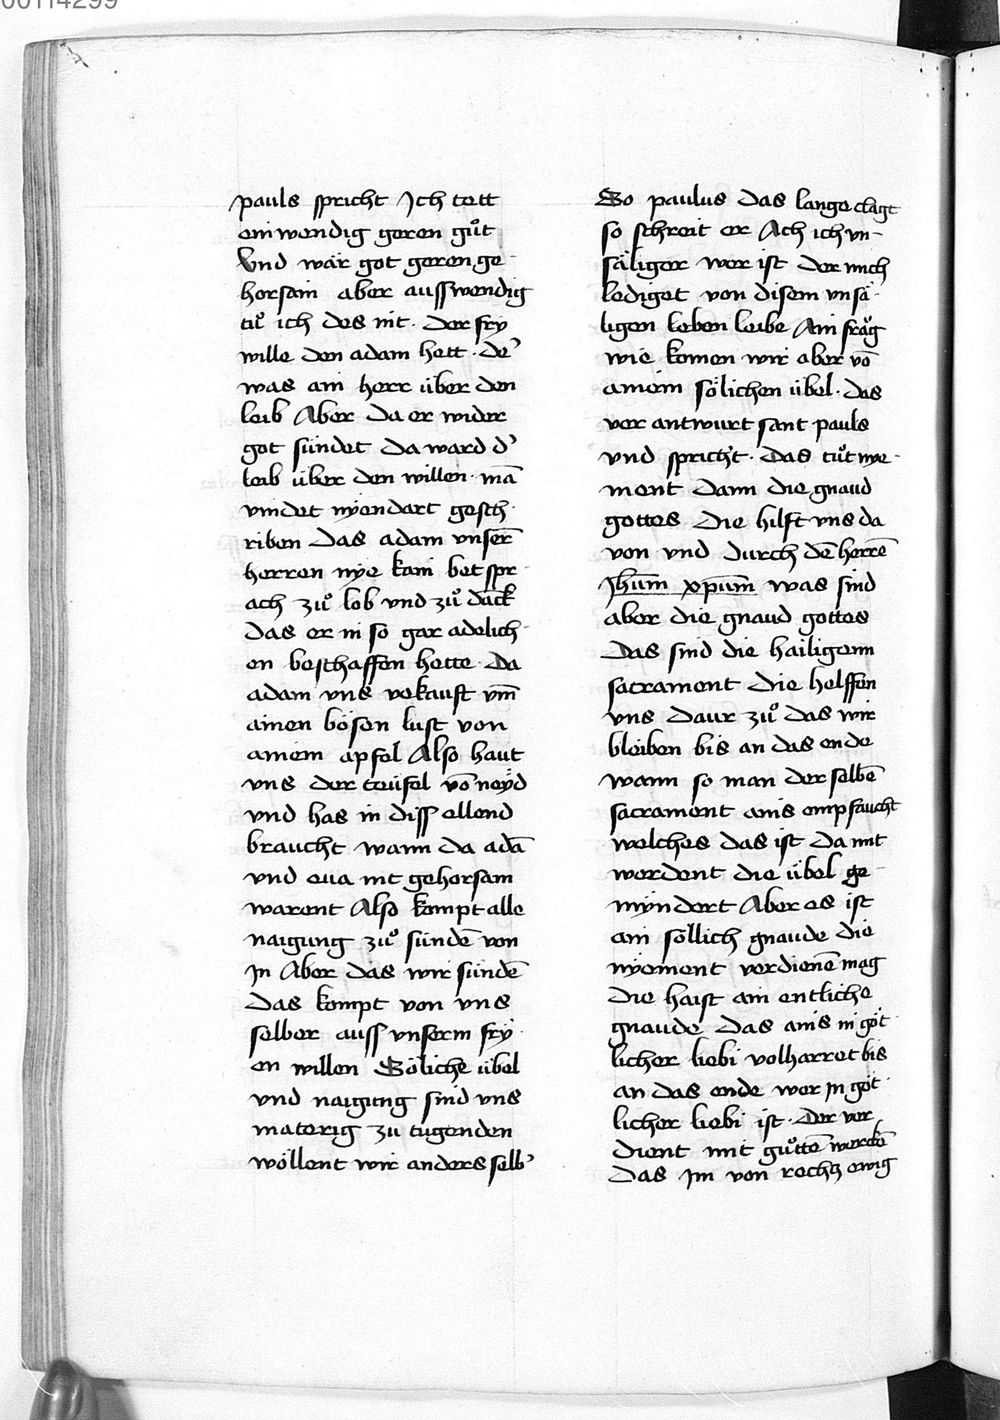 00114299
pauls spricht Ich tett
einwendig geren guͦt
Vnd wär got geren ge
horsam aber ausswendig
tuͦ ich des nit · der fry
wille den adam hett · de͛
was ain herr über den
leib Aber da er wider
got sündet da ward d͛
leib über den willen · mā
vindet nyendart gesch
riben das adam vnserm̄
herren nye kain bet spr
ach zuͦ lob vnd zuͦ danck
das er in so gar adelich
en beschaffen hette · Da
adam vns vekauft vm̄
ainen bösen lust von
ainem apfel Also haut
vns der teüfel vō neyd
vnd has in diss ellend
braucht wann da adā
vnd eua nit gehorsam
warent Also kompt alle
naigung zuͦ sündē von
In Aber das wir sündē
das kompt von vns
selber auss vnserm fry
en willen Söliche übel
vnd naigung sind vns
materig zu tugenden
wöllent wir anders selb͛
So paulus das lange clagt
so schreit er Ach ich vn-
säliger wer ist der mich
lediget von disem vnsä-
ligen leben leibe Ain fraͮg
wie komen wir aber vō
ainem sölichen übel · das
ver antwurt sant pauls
vnd spricht · Das tuͦt nye-
ment dann die gnaud
gottes die hilft vns da
von vnd durch dē herrē
Jhum̄ xpum̄ was sind
aber die gnaud gottes
Das sind die hailigenn
sacrament die helffen
vns daur zuͦ das wir
bleiben bis an das ende
wann so man der selbē
sacrament ains empfaucht
welches das ist da mit
werdent die übel ge-
myndert Aber es ist
ain söllich gnaude die
nyement verdienē mag
die haist ain entliche
gnaude das ains in göt
licher liebi volharret bis
an das ende wer in göt
licher liebi ist · der ver
dient mit guͦttē werckē
das im von rechtz ewig